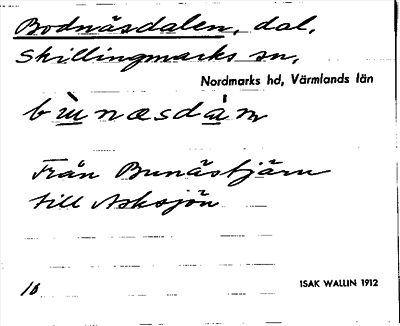 Bodnäsdalen, dal,
Skillingmarks sn,
Nordmarks hd, Värmlands län
bùnæsdàm
Från Bunästjärn
till Asksjön
16
ISAK WALLIN 1912